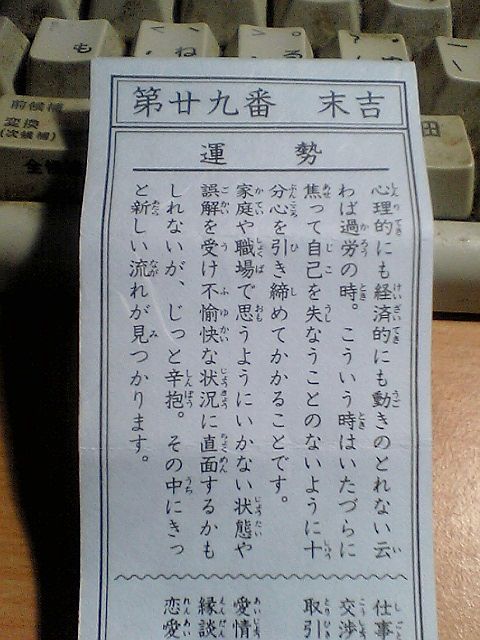 第廿九番 末吉
運勢
心理的にも経済的にも動きのとれない云
わば過労の時。こういう時はいたづらに
焦って自己を失なうことのないように十
分心を引き締めてかかることです。
家庭や職場で思うようにいかない状態や
誤解を受け不愉快な状況に直面するかも
しれないが、じっと辛抱。その中にきっ
と新しい流れが見つかります。
仕事
交渉
取引
愛情
縁談
恋愛
前候補
変換
(次候補)
も